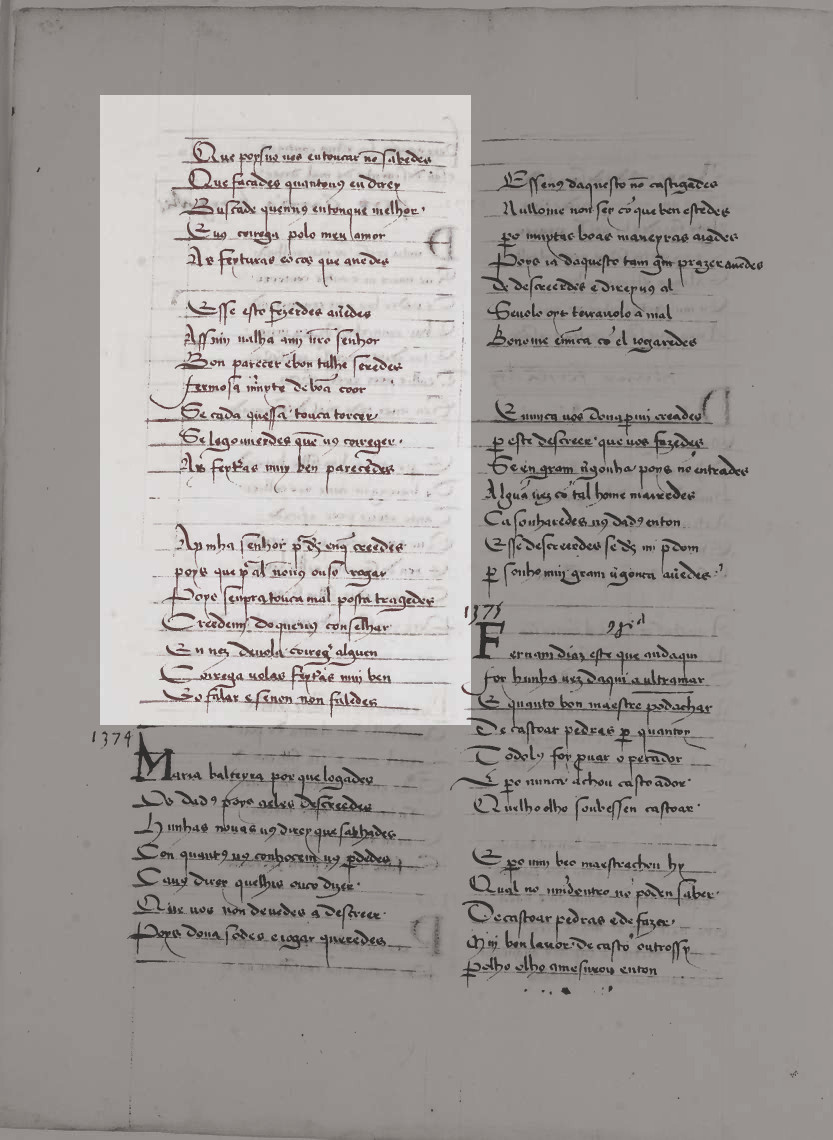 Que por suo uos entoucar nō sabedes
Que facades quantouꝯ eu direy
Buscade quenuꝯ entouque melhor.
Euꝯ correga polo meu amor
As feyturas eo cos que auedes
Esse esto fezerdes auedes
Assy mi ualha amj nr̄o senhor
Bon parecer ebon talhe seredes
fermosa muyte deboa coor
Se cada quessa touca torcer
Se logo ouuerdes quē uꝯ correger.
As feyt̃as muy ben parecedes
Ay mha senhor p̄ d's enq̄ creedes
poys que p̄ al nōuꝯ ouso rogar
Poys senpra touca mal posta tragedes
Creedemj do queuꝯ conselhar
En uez deuola correg̃ alguen
Correga uolas feyt̃as muj ben
Eo falar e senon non faledes
1374
Maria balteyra por que Iogades
Os dadꝯ poys aeles descreedes
Hunhas nouas uꝯ direy que sabhades
Con quantꝯ uꝯ conhocem uꝯ perdedes
Cauꝯ direy quelhis ouco dizer.
Que uos non deuedes a descreer.
Poys dona sodes e iogar queredes
Esseuꝯ daquesto nō castigades
Nullome non sey cō que ben estedes
pero muytas boas maneyras aiades
Poys ia daquesto tam gr̄m prazer auedes
De descreerdes e direyuꝯ al
Seuolo oyr terrauolo a mal
Bonome nūca cō el iogaredes
E nunca uos dona per mi creades
per este descreer que uos fazedes
Se en gram ūgonha poys nō entrades
Algūa uez cō tal home marredes
Ca sonharedes nꝯ dadꝯ enton
Esse descreerdes se d's mi perdom
per sonho muy gram ūgonça auedes.
1375
Fernam diaz este que andaqui
foy hunha uez daqui a ultramar
E quanto bon maestre podachar
De castoar pedras per quantoy
Todolꝯ foy prouar o pecador
E pero nunca achou castoador.
Quelho olho soubessen castoar.
E pero mui beo maestrachou hy
Qual no mūdentro nō poden saber.
De castoar pedras e de fazer.
Muj bon lauor. de castō outrossy
Pelho olho amesurou enton